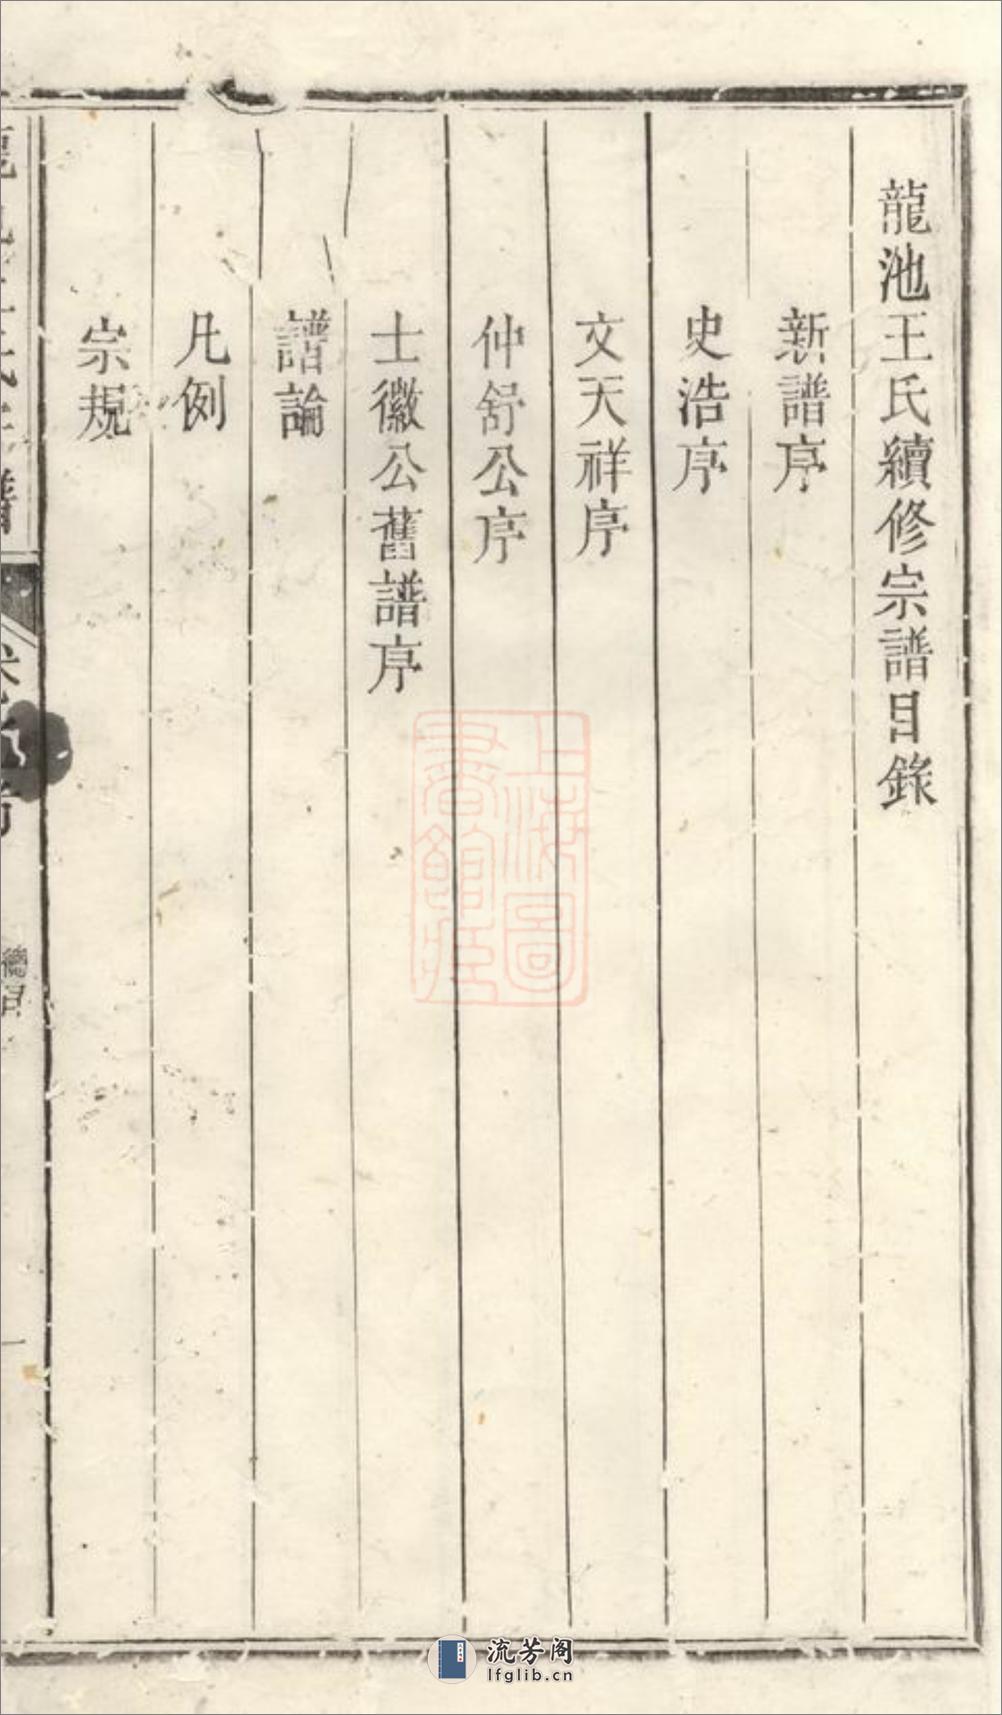 龍池王氏續修宗譜目錄
新譜序
史浩序
文天祥序
仲舒公序
士徽公舊譜序
譜論
凡例
宗規
總目
一
上海圖
書館藏
流芳阁
lfglib.cn